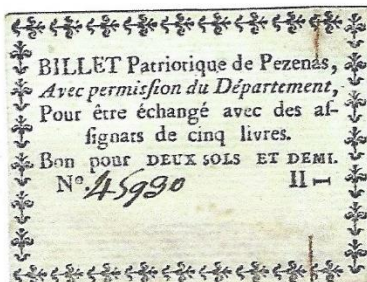 BILLET Patriotique de Pezenas,
Avec permiſſion du Département,
Pour être échangé avec des aſ-
ſignats de cinq livres.
Bon pour DEUX SOLS ET DEMI.
N°. 45990 II